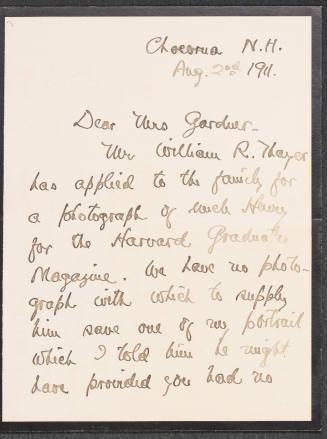 Chocorua N.H.
Aug. 2nd 1911.
Dear Mrs Gardner–
Mr William R. Thayer
has applied to the family for
a photograph of Uncle Henry
for the Harvard Graduates
Magazine. We have no photo-
graph with which to supply
him save one of my portrait
which I told him he might
have provided you had no